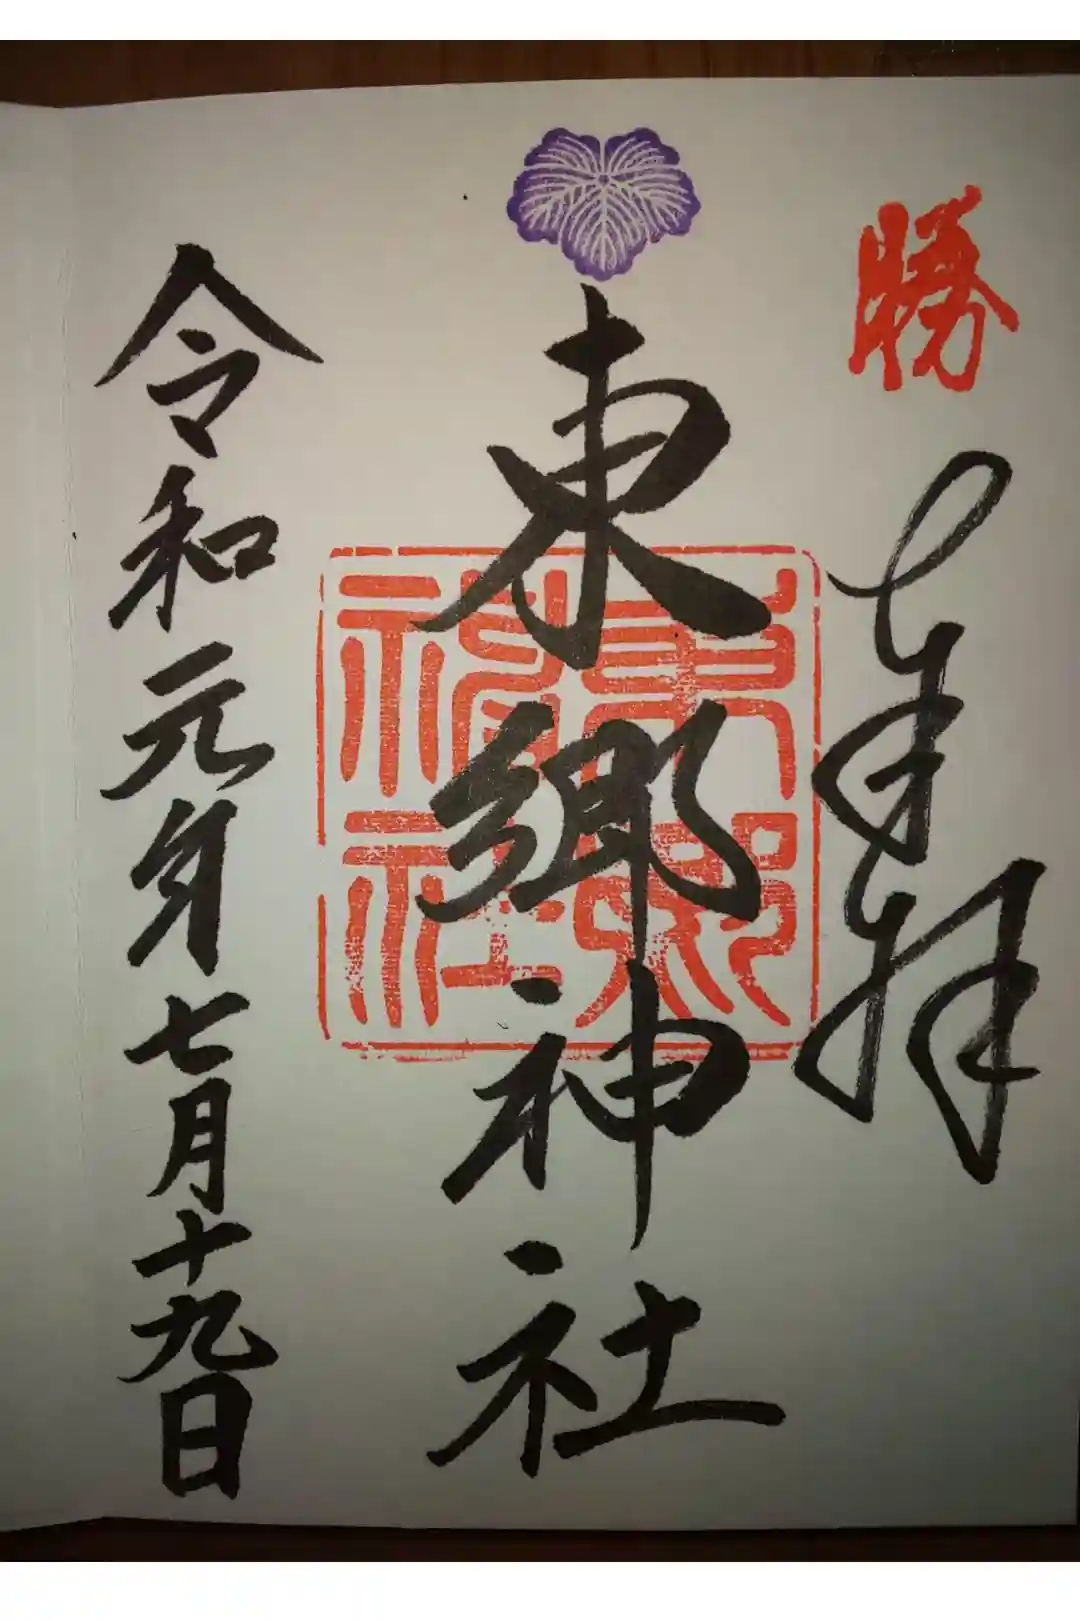 勝
奉拝
東郷神社
東郷神社
令和元年七月十九日